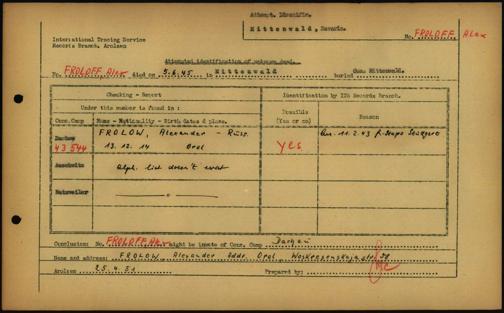 Attempt. Identific.
Mittenwald, Bavaria.
International Tracing Service
Records Branch, Arolsen
No. FROLOFF Alex
Attempted identification of unknown dead.
No. FROLOFF Alex died on 5.6.45 in Mittenwald buried Cem. Mittenwald.
Checking - Report
Identification by ITS Records Branch.
Under this number is found in :
Possible
(Yes or no)
Reason
Conc. Camp
Name - Nationality - Birth dates & place.
Dachau FROLOW, Alexander - Russ.
43 544 13. 12. 14 Orel
yes
11.2.43
Auschwitz Alph. list doesn't exist
Natzweiler
Conclusion: No. FROLOFF Alex might be inmate of Conc. Camp Dachau
Name and address: FROLOW, Alexander Addr. Orel, Woskresenskaja str. 28
Arolsen 25.4.51 Prepared by: